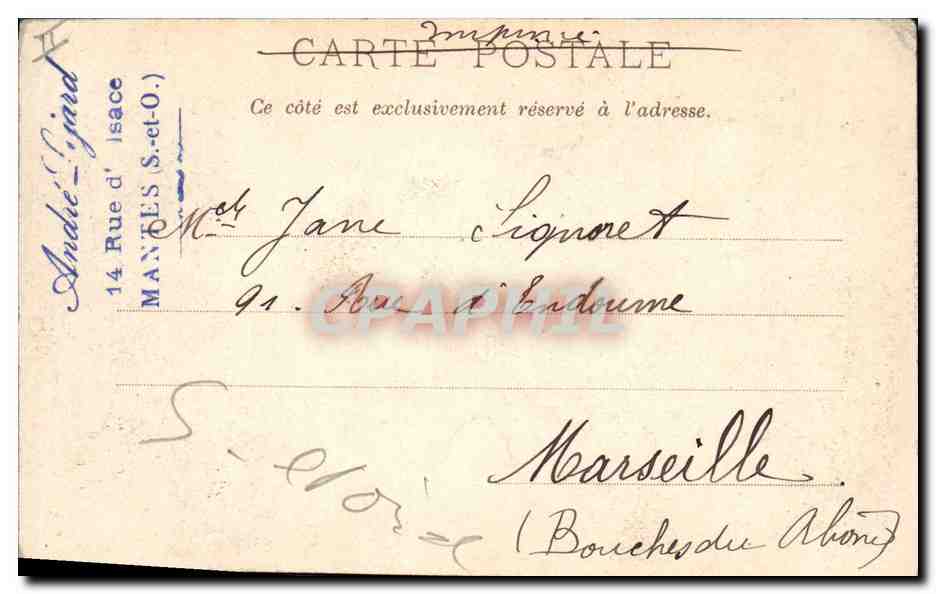 Imprimé
CARTE POSTALE
Ce côté est exclusivement réservé à l'adresse.
André Pijard
14 Rue d' Isace
MANTES (S.-et-O.)
Melle Jane Signoret
91. Rue d'Endoume
CPAPHIL
Marseille
(Bouches du Rhône)